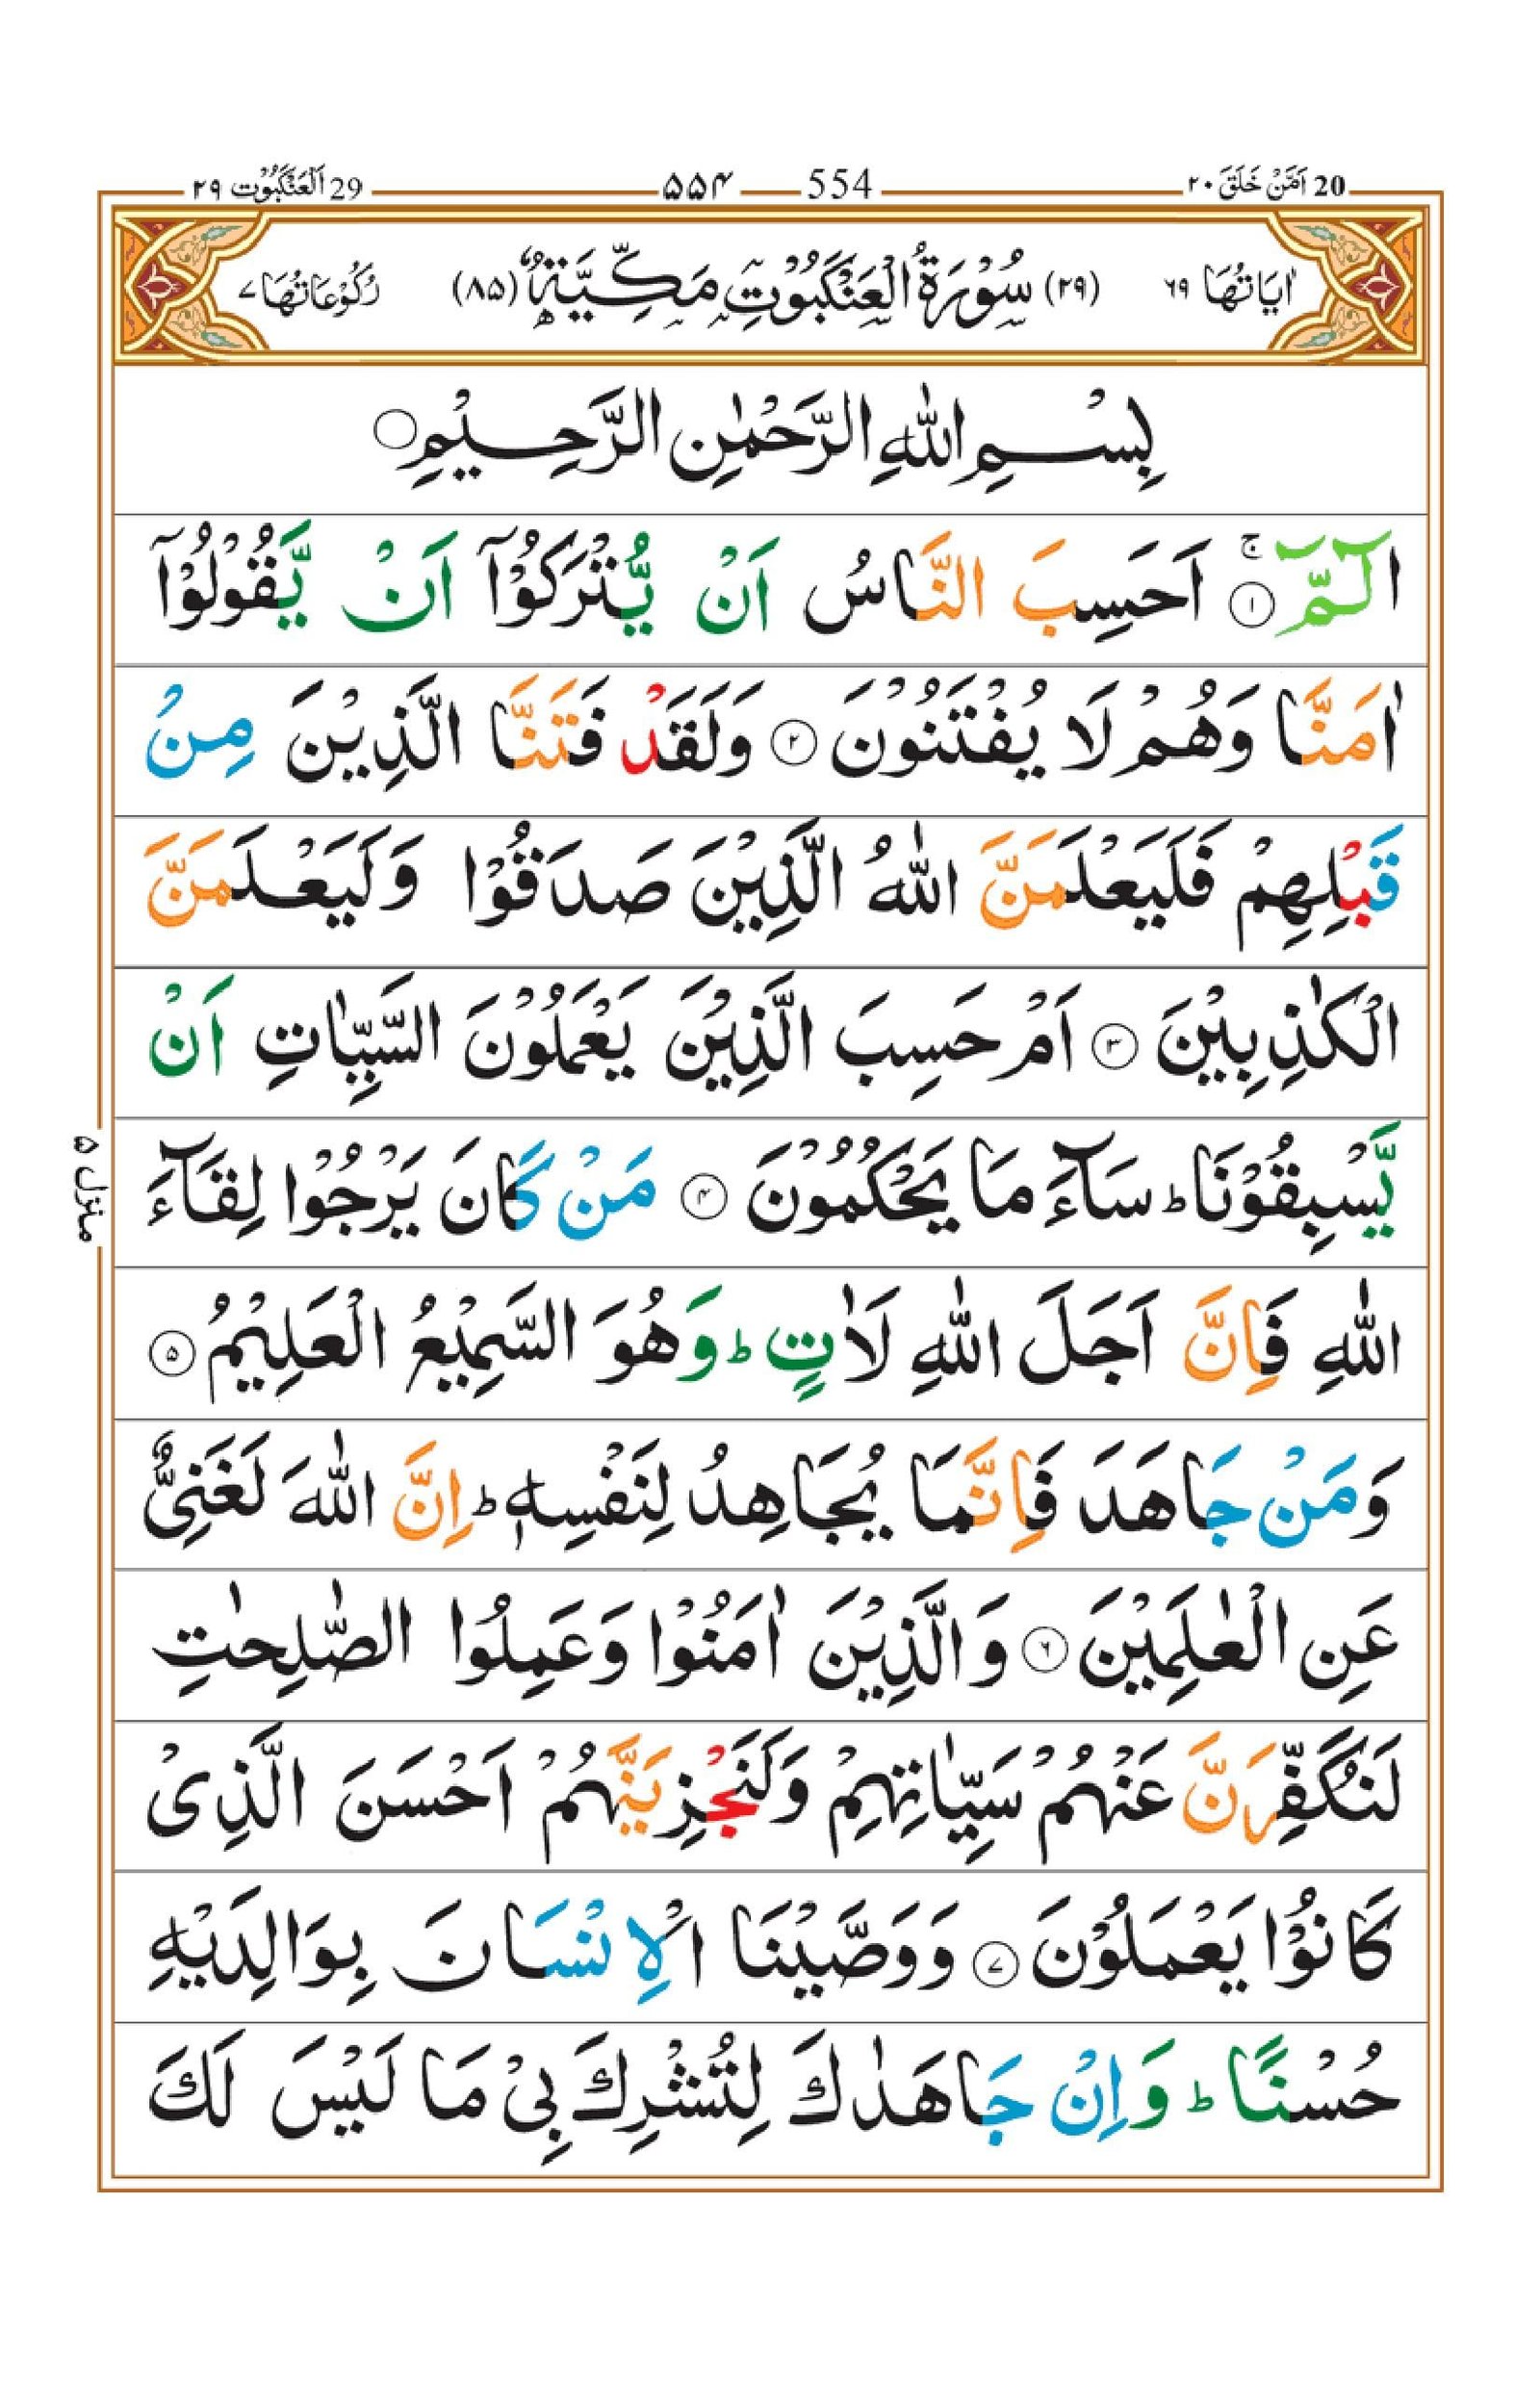 20 اَمَّنْ خَلَقَ ۲۰
554 ۵۵۴
29 اَلْعَنْكَبُوْت ۲۹
اٰيَاتُهَا ۶۹ (۲۹) سُوْرَةُ الْعَنْكَبُوْتِ مَكِّيَّةٌ (۸۵) رُكُوْعَاتُهَا ۷
بِسْمِ اللّٰهِ الرَّحْمٰنِ الرَّحِيْمِ ○
الٓمّٓ ۚ ۝۱ اَحَسِبَ النَّاسُ اَنْ يُّتْرَكُوْۤا اَنْ يَّقُوْلُوْۤا
اٰمَنَّا وَهُمْ لَا يُفْتَنُوْنَ ۝۲ وَلَقَدْ فَتَنَّا الَّذِيْنَ مِنْ
قَبْلِهِمْ فَلَيَعْلَمَنَّ اللّٰهُ الَّذِيْنَ صَدَقُوْا وَلَيَعْلَمَنَّ
الْكٰذِبِيْنَ ۝۳ اَمْ حَسِبَ الَّذِيْنَ يَعْمَلُوْنَ السَّيِّاٰتِ اَنْ
يَّسْبِقُوْنَا ؕ سَآءَ مَا يَحْكُمُوْنَ ۝۴ مَنْ كَانَ يَرْجُوْا لِقَآءَ
اللّٰهِ فَاِنَّ اَجَلَ اللّٰهِ لَاٰتٍ ؕ وَهُوَ السَّمِيْعُ الْعَلِيْمُ ۝۵
وَمَنْ جَاهَدَ فَاِنَّمَا يُجَاهِدُ لِنَفْسِهٖ ؕ اِنَّ اللّٰهَ لَغَنِيٌّ
عَنِ الْعٰلَمِيْنَ ۝۶ وَالَّذِيْنَ اٰمَنُوْا وَعَمِلُوا الصّٰلِحٰتِ
لَنُكَفِّرَنَّ عَنْهُمْ سَيِّاٰتِهِمْ وَلَنَجْزِيَنَّهُمْ اَحْسَنَ الَّذِيْ
كَانُوْا يَعْمَلُوْنَ ۝۷ وَوَصَّيْنَا الْاِنْسَانَ بِوَالِدَيْهِ
حُسْنًا ؕ وَاِنْ جَاهَدٰكَ لِتُشْرِكَ بِيْ مَا لَيْسَ لَكَ
منزل ۵